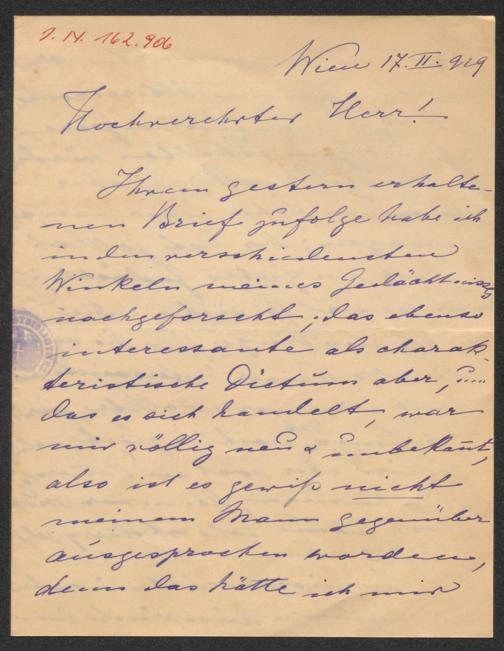 I.N. 162.906
Wien 17. II. 919
Hochverehrter Herr!
Ihrem gestern erhalte-
nen Brief zufolge habe ich
in den verschiedensten
Winkeln meines Gedächtnisses
nachgeforscht; das ebenso
interessante als charak-
teristische Dictum aber, um
das es sich handelt, war
mir völlig neu & unbekannt,
also ist es gewiß nicht
meinem Mann gegenüber
ausgesprochen worden,
denn das hätte ich mir